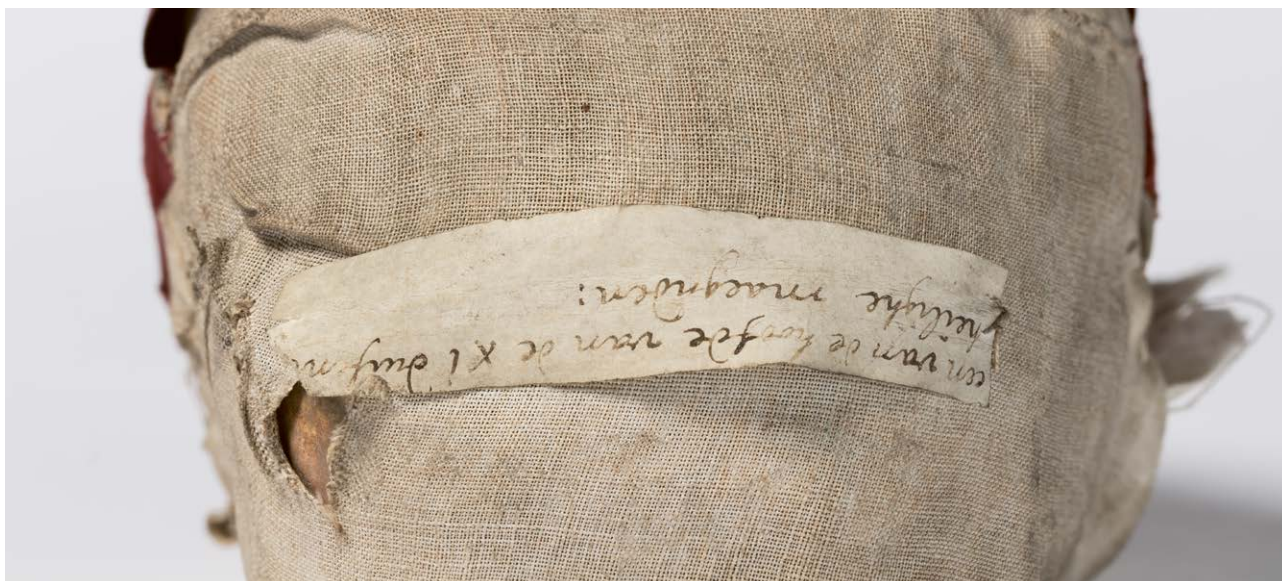 een van de hoofde van de xi duysent
heilighe maeghden: